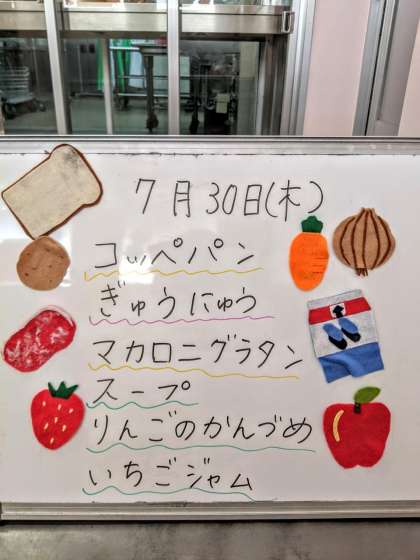 7月30日(木)
コッペパン
ぎゅうにゅう
マカロニグラタン
スープ
りんごのかんづめ
いちごジャム